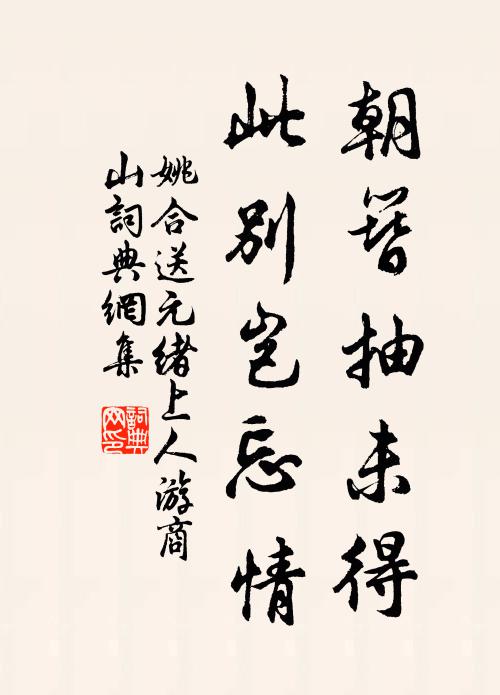 朝簪抽未得
此別豈忘情
姚合送元緒上人游商
山詞典網集
詞典
网印